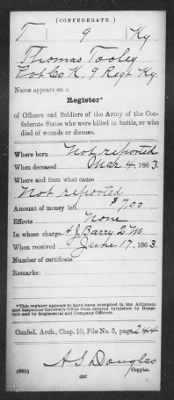 (CONFEDERATE.)
T 9 Ky
Thomas Tooley
Pvt Co K. 9 Regt Ky.
Name appears on a
Register*
of Officers and Soldiers of the Army of the Con-
federate States who were killed in battle, or who
died of wounds or disease.
Where born Not reported
When deceased Mar 4, 1863.
Where and from what cause
Not reported
Amount of money left $7.00
Effects None
In whose charge A J Barry Q M
When received June 17, 1863.
Number of certificate
Remarks:
*This register appears to have been compiled in the Adjutant
and Inspector General's Office from data furnished by Hospi-
tals and by Regimental and Company Officers.
Confed. Arch., Chap. 10, File No. 5, page 244
A. S. Douglas
Copyist.